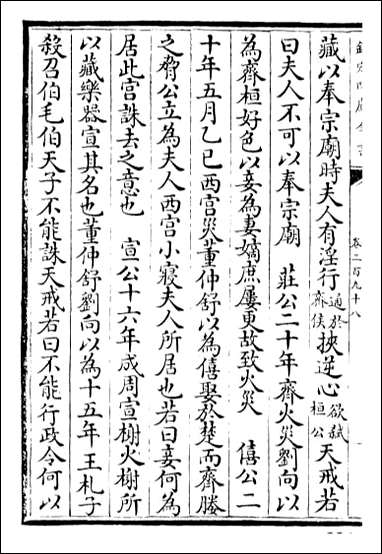 欽定四庫全書
卷二百九十八
藏以奉宗廟時夫人有淫行通於齊侯挾逆心欲弑桓公天戒若
曰夫人不可以奉宗廟 莊公二十年齊火災劉向以
為齊桓好色以妾為妻嫡庶屢更故致火災 僖公二
十年五月乙巳西宮災董仲舒以為僖娶於楚而齊媵
之脅公立為夫人西宮小寢夫人所居也若曰妾何為
居此宮誅去之意也 宣公十六年成周宣榭火榭所
以藏樂器宣其名也董仲舒劉向以為十五年王札子
殺召伯毛伯天子不能誅天戒若曰不能行政令何以